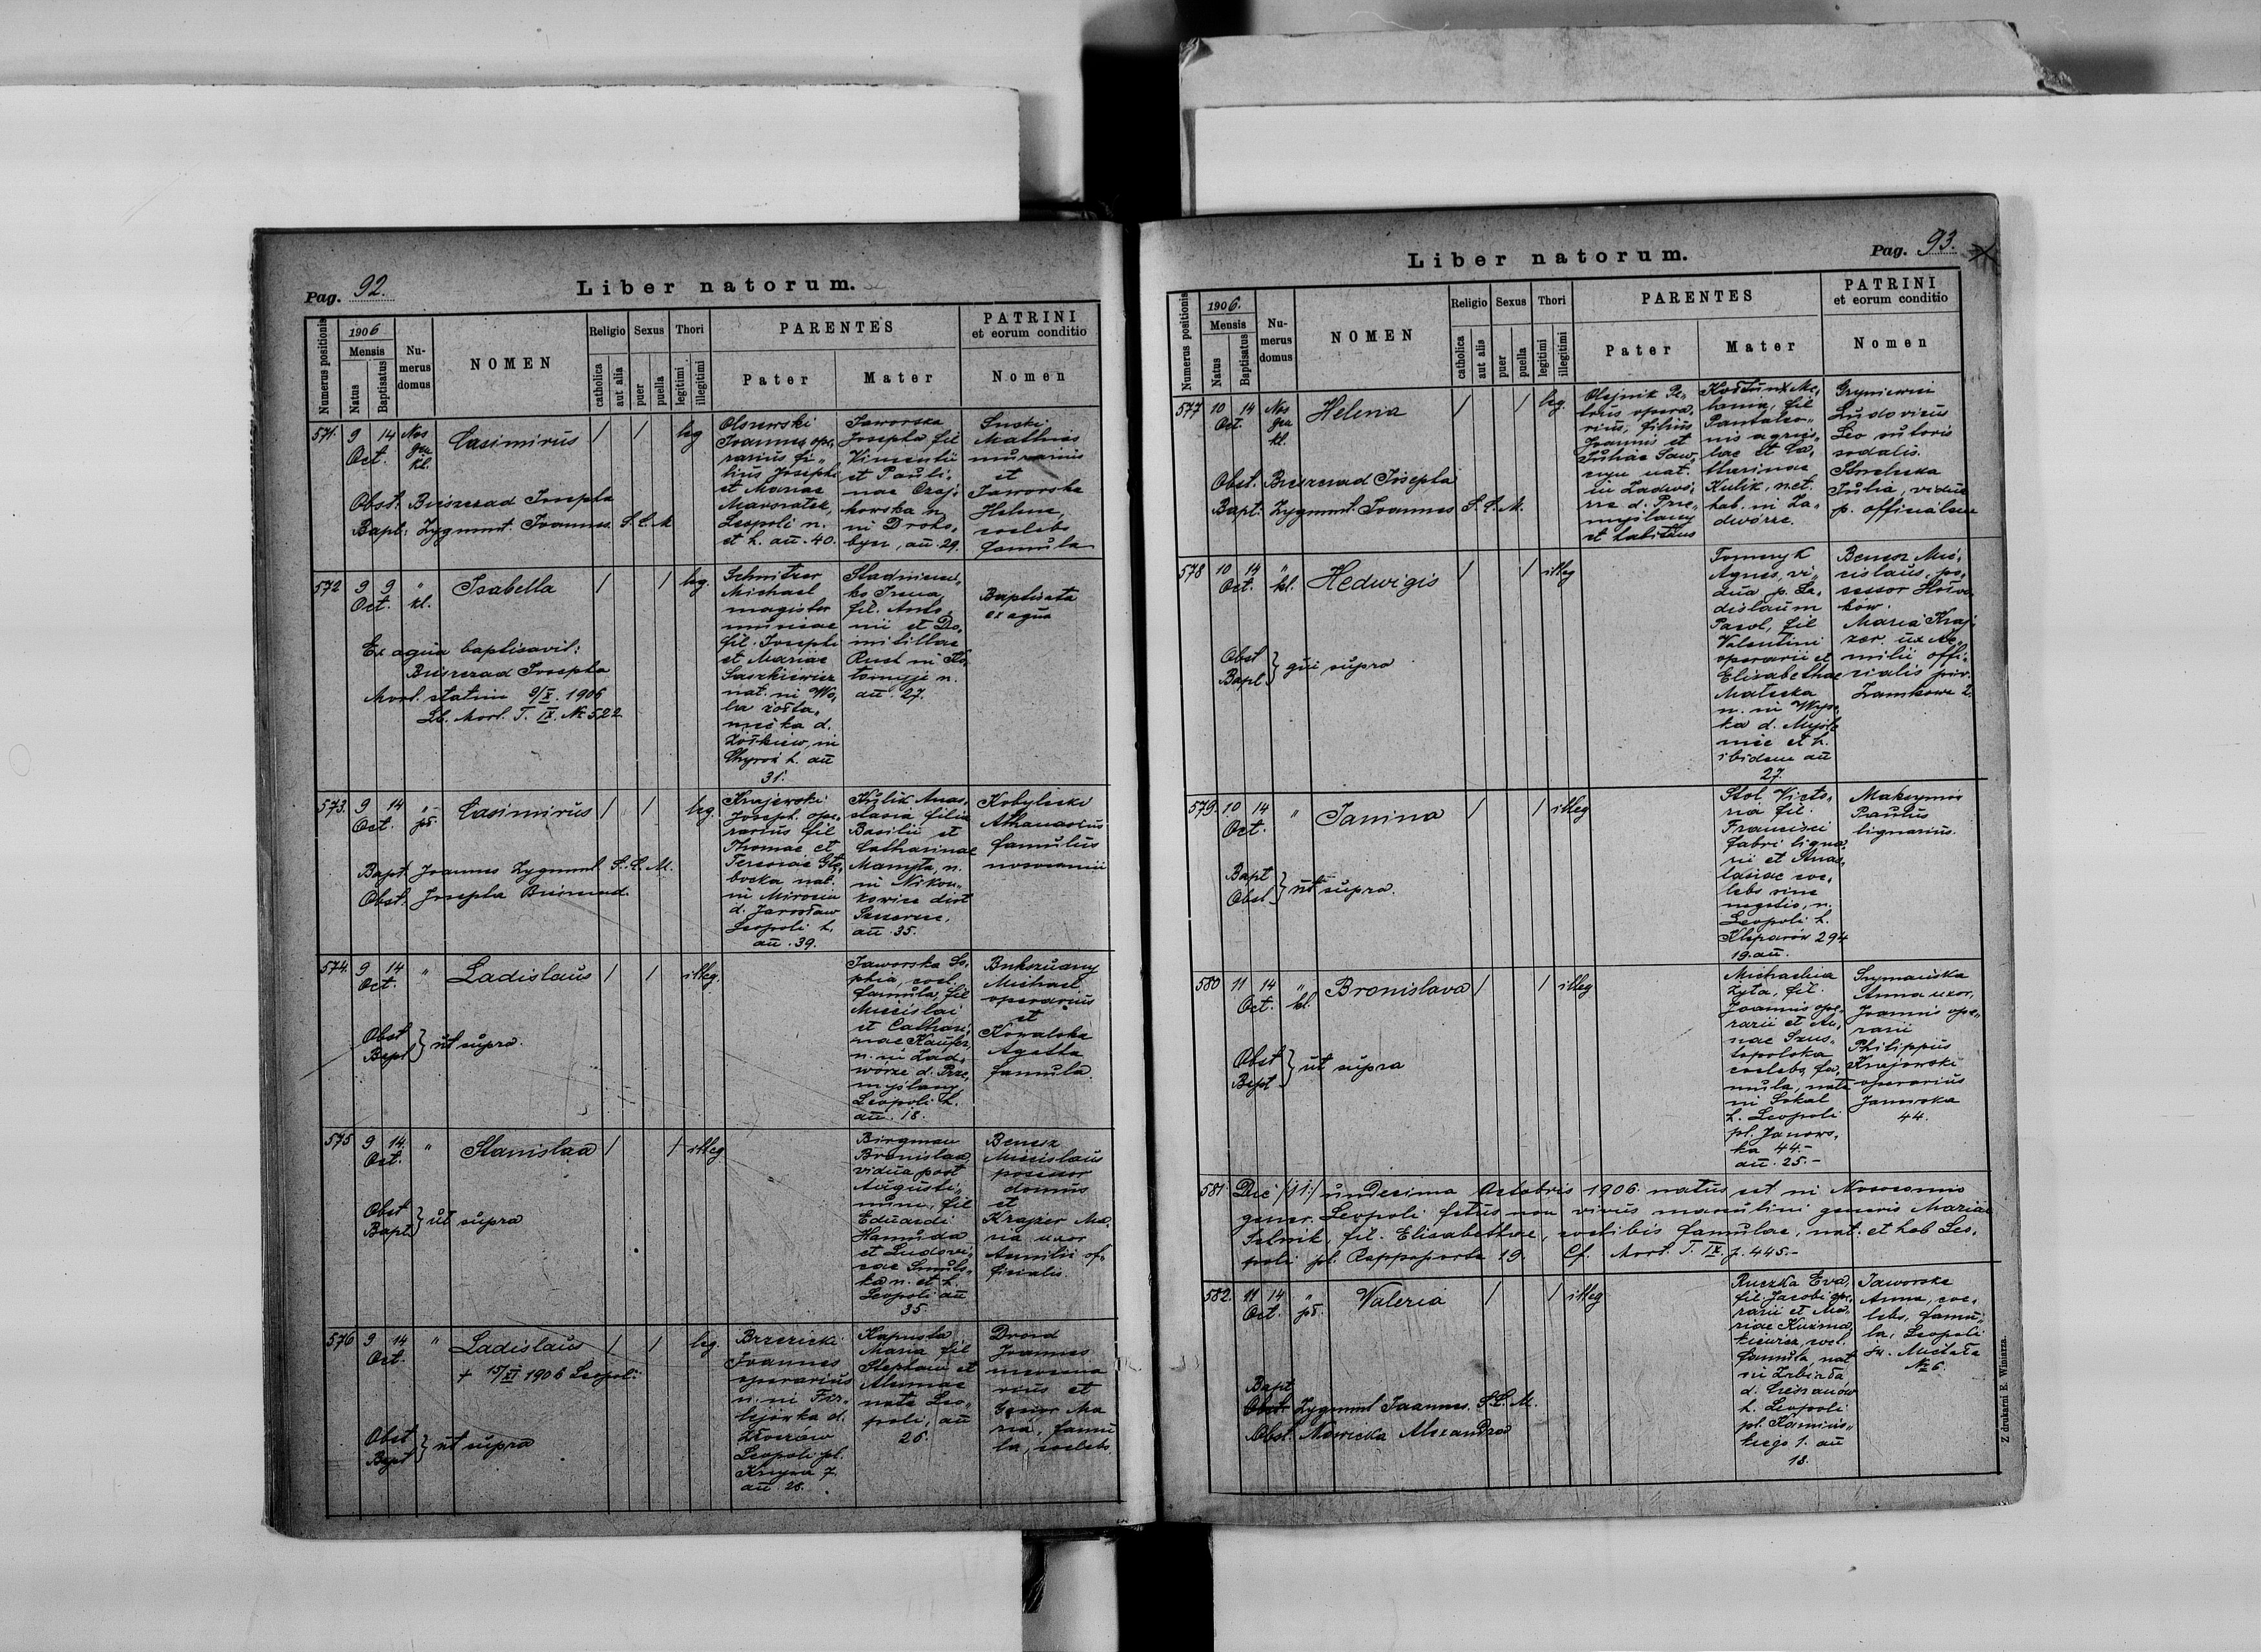 Pag. 92.
Liber natorum.
Numerus positionis
1906
Mensis
Natus
Baptisatus
Nu-
merus
domus
NOMEN
Religio
catholica
aut alia
Sexus
puer
puella
Thori
legitimi
illegitimi
PARENTES
Pater
Mater
PATRINI
et eorum conditio
Nomen
571. 9 14 Oct. Nos gen kl. Casimirus / / leg
Obst: Josepha
Bapt: Zygmunt Joannes S. L. M
Olszewski
Joannes ope,
rarius fi„
lius Josephi
et Mariae
Leopoli n.
et h. an. 40.
Jaworska
Josepha fil
Vincentii
et Pauli„
nae
kowska n.
in Droho„
bycz, an. 29.
Mathias
murarius
et
Jaworska
Helena,
coelebs
famula
572 9 9 Oct. " kl. Isabella / / leg.
Ex aqua baptisavit:
Josepha
Mort. statim 9/X. 1906
Lb. Mort. T. IX. № 522
Schnitzer
Michael
magister
musicae
fil. Josephi
et Mariae
Saszkiewicz
nat. in Wo„
la
d.
Żółkiew, in
Chyrów h. an
31.
Irena,
fil. Anto„
nii et Do„
mitillae
Rust in Ko„
łomyji n.
an. 27.
Baptisata
ex aqua
573. 9 14 Oct. " ps. Casimirus / / leg.
Bapt. Joannes Zygmunt S. L. M.
Obst. Josepha
Krajewski
Joseph. ope„
rarius fil
Thomae et
Teresiae
nat.
in Mirocin
d. Jarosław
Leopoli h.
an. 39.
Kulik Anas„
tasia filia
Basilii et
Catharinae
n.
in Nikon„
kowice dist
an. 35.
Kobylecki
Athanasius
famulus
nosocomii
574. 9 14 Oct. " Ladislaus / / illeg.
Obst
Bapt } ut supra.
Jaworska So„
phia, coel.
famula, fil
Miecislai
et Cathari„
nae
n. in Zad„
wórze d. Prze„
myślany
Leopoli h.
an. 18.
Michael
operarius
et
Kowalska
Agatha
famula.
575 9 14. Oct. " Stanislaa / / illeg
Obst
Bapt } ut supra
Birgman
Bronislaa,
vidua post
Augusti„
num, fil
Eduardi
Hamuda
et Ludovi„
cae Smuls„
ka n. et h.
Leopoli an
35.
Benesz
Miecislaus
possessor
domus
et
Krajzer Ma„
ria uxor
Aemilii of„
ficialis.
576 9 14 Oct. " Ladislaus / / leg.
+ 15/XI 1906 Leopoli
Obst
Bapt } ut supra
Brzezicki
Joannes
operarius
n. in
d.
Złoczów
Leopoli pl.
Krzywa 7.
an 28.
Kapusta
Maria fil
Stephani et
nata Leo„
poli, an
26.
Drozd
Joannes
et
Ma
ria, famu
la, coelebs
Liber natorum.
Pag. 93.
Numerus positionis
1906.
Mensis
Natus
Baptisatus
Nu-
merus
domus
NOMEN
Religio
catholica
aut alia
Sexus
puer
puella
Thori
legitimi
illegitimi
PARENTES
Pater
Mater
PATRINI
et eorum conditio
Nomen
577 10 14 Oct. Nos gen kl. Helena / / leg.
Obst. Josepha
Bapt. Zygmunt Joannes S. L. M.
Olejnik Pe„
trus opera„
rius, filius
Joannis et
Juliae
nat.
in Zadwó„
rze d. Prze„
myślany
et habitans
Me„
lania, fil
Pantaleo„
nis agrico„
lae et Ca„
tharinae
Kulik, nat.
hab. in Za„
dwórze.
Gryniewicz
Ludovicus
Leo sutoris
sodalis.
Julia, vidua
p. officialem
578 10 14 Oct. " kl. Hedwigis / / illeg
Obst
Bapt } qui supra
Tomczyk
Agnes, vi„
dua p. La„
dislaum
fil
Valentini
operarii et
Elisabethae
Matecka
n. in
d.
et h.
ibidem an
27.
Benesz Mie„
cislaus, po„
sessor
Maria Kraj
zer. ux Ae„
milii offi„
cialis priv.
Zamkowa 2.
579. 10 14 Oct. " Janina / / illeg
Bapt
Obst } ut supra.
Stol Victo„
ria fil.
Francisci
fabri ligna„
rii et Anas„
tasiae coe„
lebs sine
negotio, n.
Leopoli h.
Kleparów 294
19. an.
Maksymow
Paulus
lignarius.
580 11 14 Oct. " kl. Bronislava / / illeg
Obst
Bapt } ut supra
Michaelina
Żyta, fil.
Joannis ope„
rarii et An„
nae
coelebs, fa„
mula, nata
in Sokal
h. Leopoli
pl. Janows„
ka 44.-
an. 25.-
Szymańska
Anna uxor,
Joannis ope„
rarii
Philippus
Krajewski
operarius
Janowska
44.
581. Die /11/ undecima Octobris 1906 natus est in Nosocomio
gener. Leopoli fetus non vivus masculini generis Mariae
fil. Elisabethae, coelibis famulae, nat. et hab Leo„
poli pl. Rappoporta 19. Cf. Mort. T. IX. p. 445.-
582. 11 14 Oct. " ps. Valeria / / illeg
Bapt
Zygmunt Joannes. S. L. M.
Obst. Nowicka Alexandra
Ruczka Eva,
fil. Jacobi ope„
rarii et Ma„
riae Kuzma„
kiewicz, coel.
famula, nat
in
d. Cieszanów
h. Leopoli
pl.
kiego 1. an
18.
Jaworska
Anna, coe„
lebs, famu„
la, Leopoli
św. Michała
№ 6.
Z drukarni E. Winiarza.